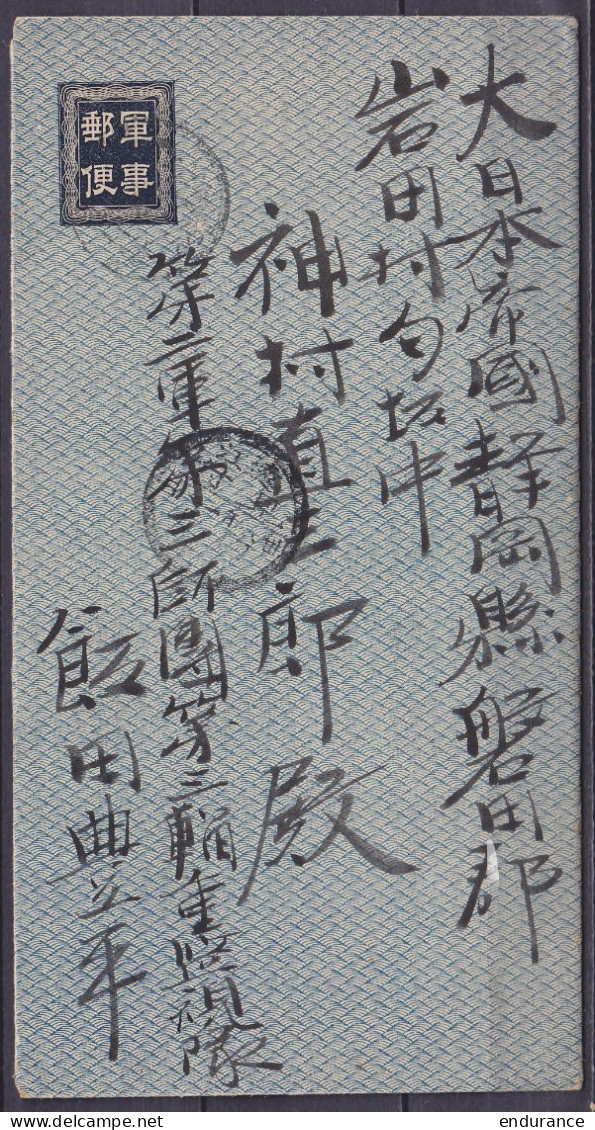 軍事
郵便
大日本帝國静岡縣磐田郡
岩田村匂坂中
神村直三郎殿
第二軍第三師團第三輜重監視隊
飯田豊平
delcampe.net
endurance